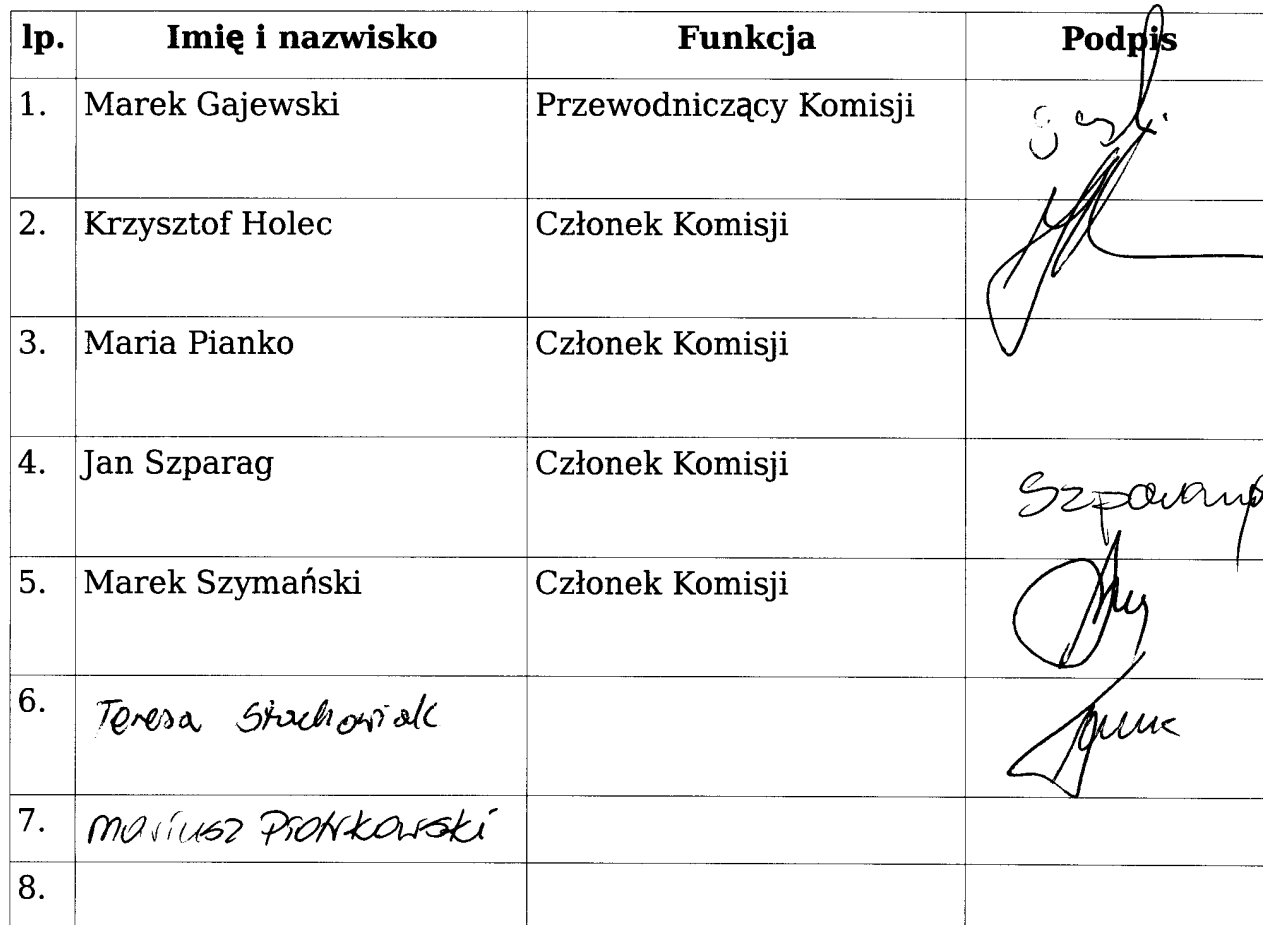 lp. Imię i nazwisko Funkcja Podpis
1. Marek Gajewski Przewodniczący Komisji
2. Krzysztof Holec Członek Komisji
3. Maria Pianko Członek Komisji
4. Jan Szparag Członek Komisji Szparag
5. Marek Szymański Członek Komisji
6. Teresa Stachowiak
7. Mariusz Piotrkowski
8.